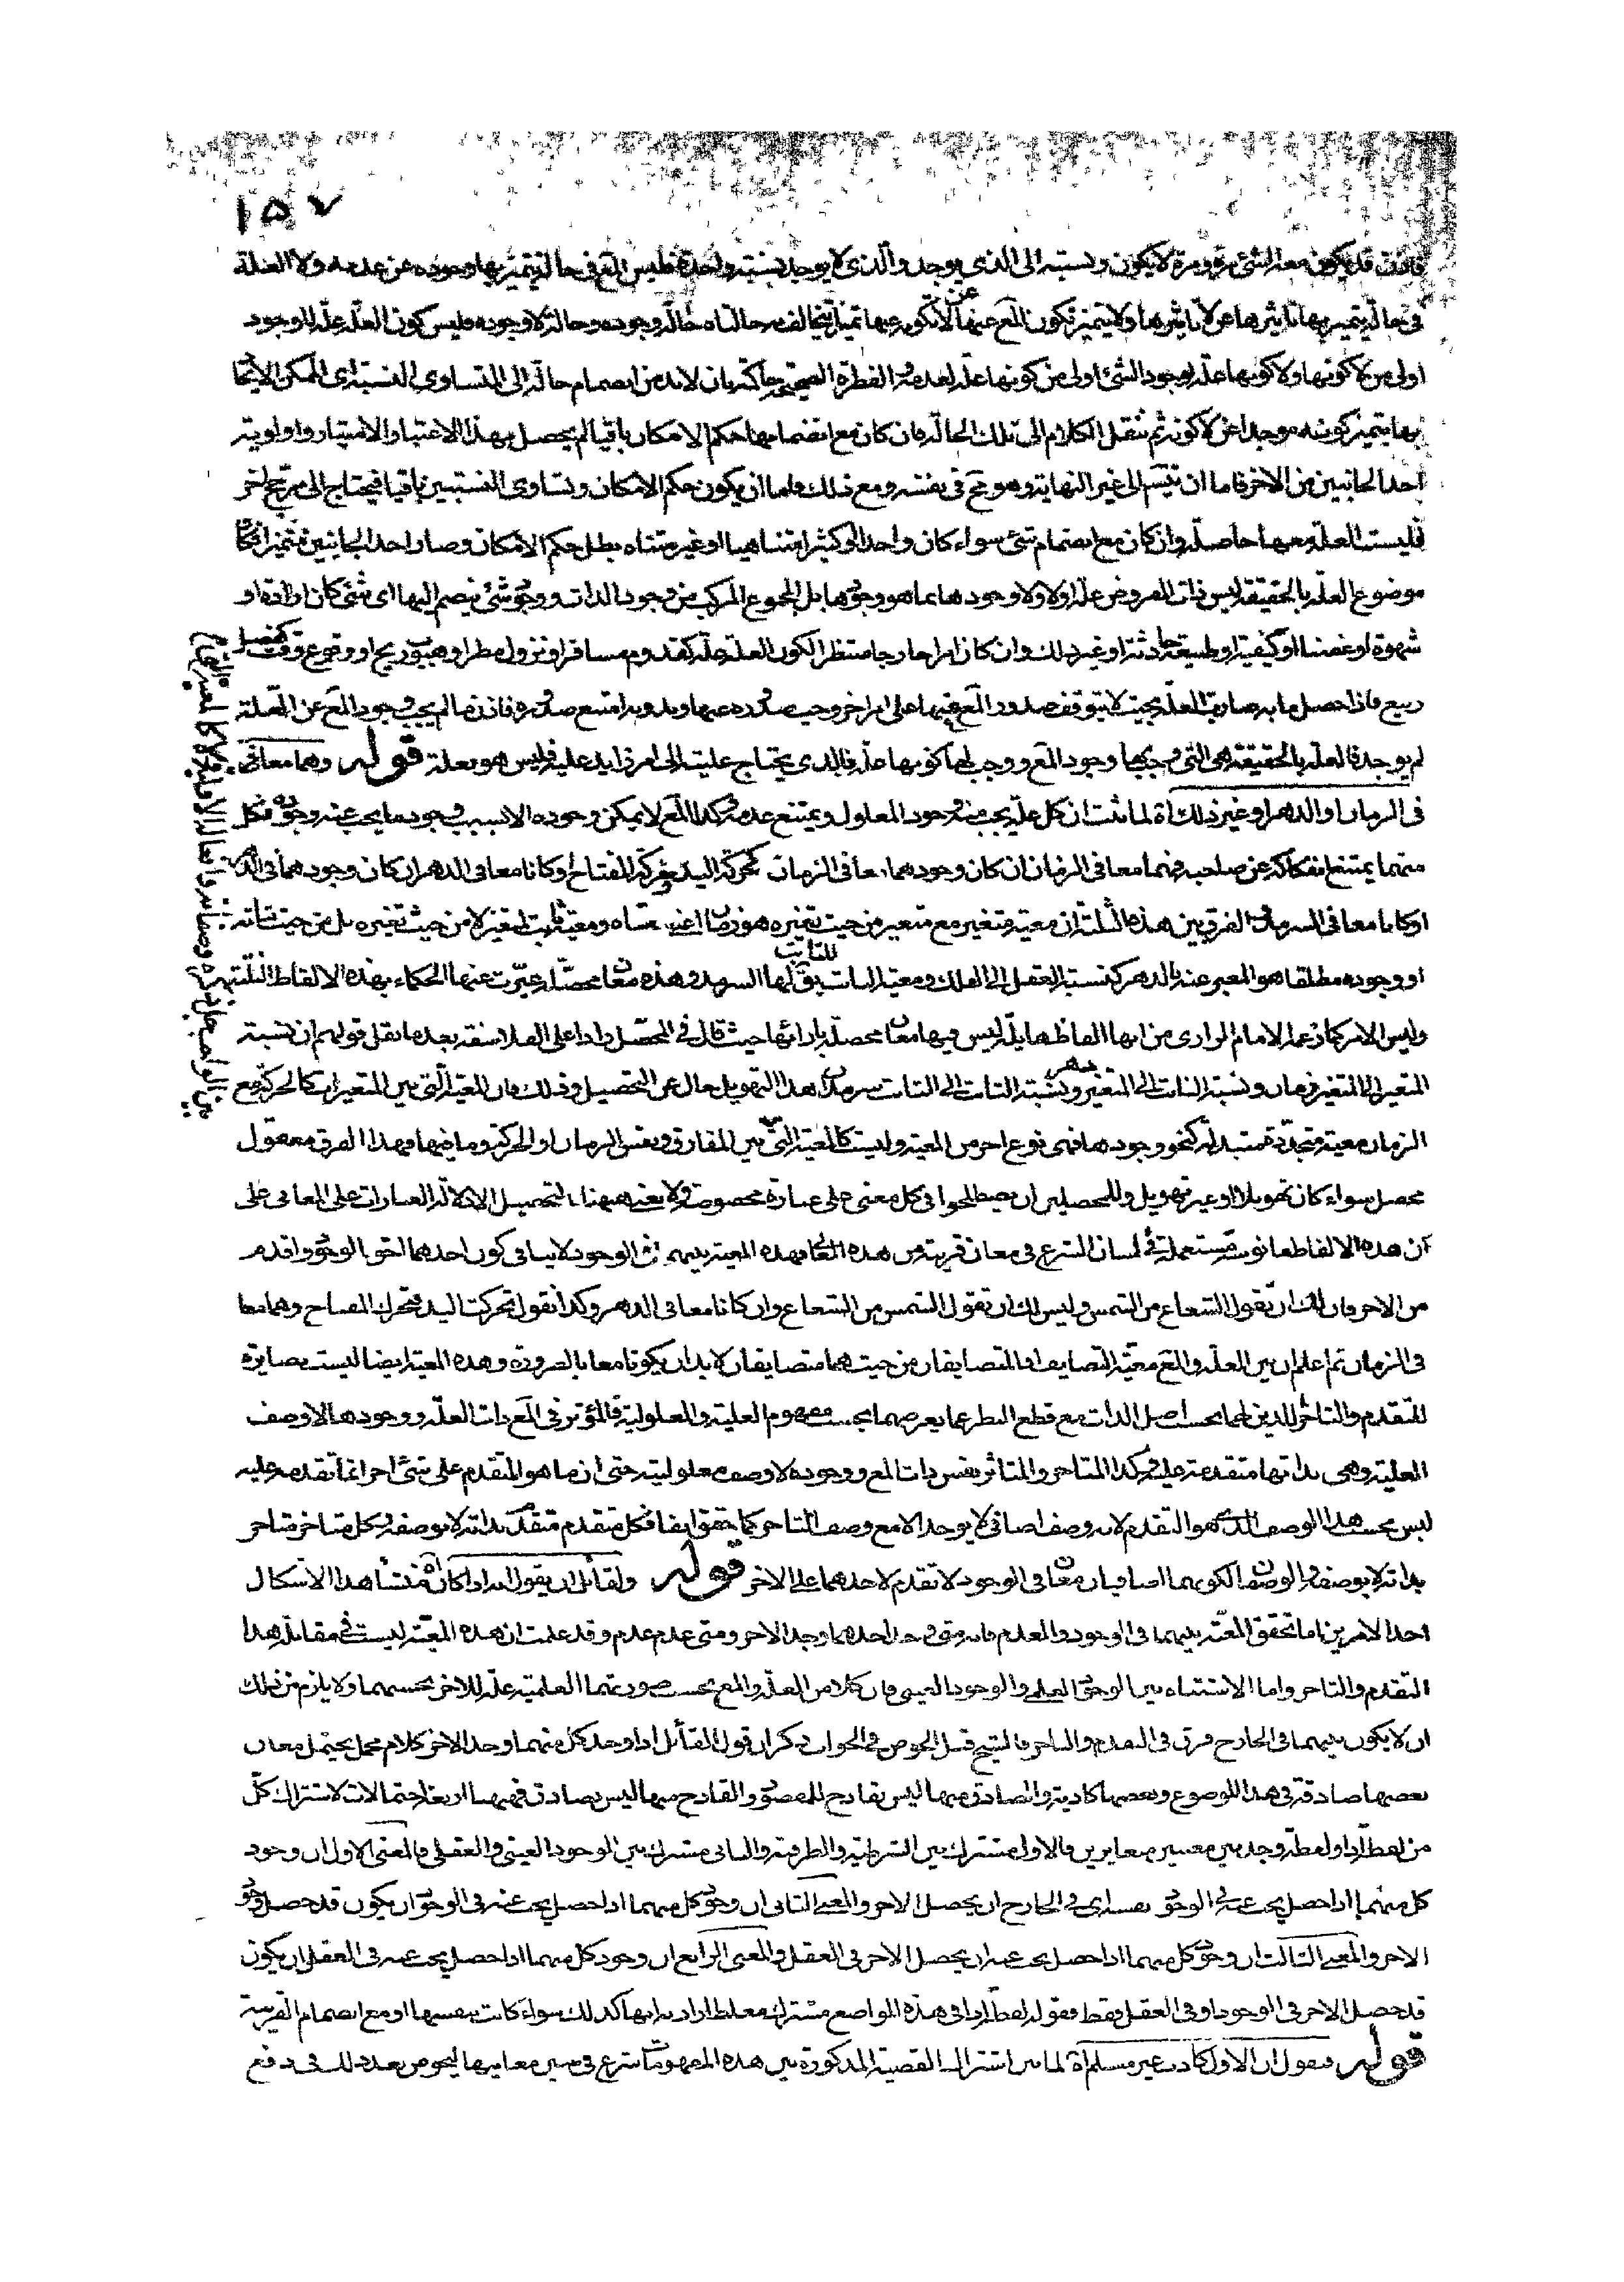 ١٥٧
فاذن قد يكون معه الشئ مرة ومرة لا يكون ونسبته الى الذى يوجد والذى لا يوجد نسبته واحدة فليس المع فى حالة يتميز بها وجوده عن عدمه ولا العلة
فى حالة يتميز بها تاثيرها عن لا تاثيرها ولا يتميز تكون المع عنها عن لا تكونه عنها تميزا يخالف به حالتاه حالة وجوده وحالة لا وجوده فليس كون العلة علة للوجود
اولى من لا كونها ولا كونها علة لوجود الشئ اولى من كونها علة لعدمه والفطرة الصحيحة حاكمة بان لا بد من انضمام حالة الى المتساوى النسبة اى الممكن الايجاد
بها يتميز كونه موجدا عن لا كونه ثم ننقل الكلام الى تلك الحالة فان كان مع انضمامها حكم الامكان باقيا لم يحصل بهذا الاعتبار الامتياز واولوية
احد الجانبين من الاخر فاما ان يتسم الى غير النهاية وهو مح فى نفسه ومع ذلك فاما ان يكون حكم الامكان وتساوى النسبتين باقيا فيحتاج الى مرجح اخر
فليست العلة معها حاصلة وان كان مع انضمام شئ سواء كان واحدا او كثيرا متناهيا او غير متناه بطل حكم الامكان وصار احد الجانبين متميزا فكان
موضوع العلة بالحقيقة ليس ذات المفروض علة اولا ولا وجودها بما هو وجودها بل المجموع المركب من وجود الذات ووجود شئ ينضم اليها اى شئ كان ارادة او
شهوة او غضبا او كيفية او طبيعة حادثة او غير ذلك وان كان امرا خارجا منتظرا لكون العلة علة كقدوم مسافر او نزول مطر او هبوب ريح او وقوع وقت كفصل
ربيع فاذا حصل ما به صارت العلة بحيث لا يتوقف صدور المع عنها على امر اخر وجب صدوره عنها وبدونه امتنع صدوره فاذن ما لم يجب وجود المع عن العلة
لم يوجد فالعلة بالحقيقة هى التى يجب بها وجود المع ووجب لها كونها علة فالذى يحتاج علية الى امر زايد عليه فليس هو بعلة قوله وهما معا فى
فى الزمان او الدهر او غير ذلك اة لما ثبت ان كل علة يجب منه وجود المعلول ويمتنع عدمه وكذا المع لا يمكن وجوده الا بسبب وجود ما يجب عنه وجوده فكل
منهما يمتنع انفكاكه عن صاحبه فهما معا فى الزمان ان كان وجودهما معا فى الزمان كحركة اليد وحركة المفتاح وكانا معا فى الدهر ان كان وجودهما فى الدهر
او كانا معا فى السرمد والفرق بين هذه الثلثة ان معية متغير مع متغير من حيث تغيره هو زمان اعنى متاه ومعية ثابت لمتغير لا من حيث تغيره بل من حيث ثباته
او وجوده مطلقا هو المعبر عنه بالدهر كنسبة العقل الى الفلك ومعية الثابت للثابت يق لها السرمد وهذه معان محصلة عبرت عنها الحكماء بهذه الالفاظ الثلثة
وليس الامر كما زعم الامام الرازى من انها الفاظ هايلة ليس فيها معان محصلة بازائها حيث قال فى المحصل رادا على الفلاسفة بعد ما نقل قولهم ان نسبة
المتغير الى المتغير زمان ونسبة الثابت الى المتغير دهر ونسبة الثابت الى الثابت سرمد ان هذا التهويل خال عن التحصيل وذلك فان المعية التى بين المتغيرات كالحركة مع
الزمان معية متجددة متبدلة كنحو وجودها فهى نوع اخر من المعية وليست كالمعية التى بين المفارق ونفس الزمان او الحركة وما فيها فهذا الفرق معقول
محصل سواء كان تهويلا او غير تهويل وللمحصلين ان يصطلحوا فى كل معنى على عبارة مخصوصة ولا يعنى ههنا بالتحصيل الا دلالة العبارات على المعانى على
ان هذه الالفاظ مانوسة مستعملة فى لسان الشرع فى معان قريبة من هذه المعانى فهذه المعية بينهما فى الوجود لا ينافى كون احدهما احق بالوجود واقدم
من الاخر فان لك ان تقول الشعاع من الشمس وليس لك ان تقول الشمس من الشعاع وان كانا معا فى الدهر وكذا نقول تحركت اليد فتحرك المفتاح وهما معا
فى الزمان ثم اعلم ان بين العلة والمع معية التضايف اذ المتضايفان من حيث هما متضايفان لا بد ان يكونا معا بالضرورة وهذه المعية ايضا ليست بضايرة
للتقدم والتاخر اللذين لهما بحسب اصل الذات مع قطع النظر عما يعرضهما بحسب مفهوم العلية والمعلولية فالمؤثر فى المع ذات العلة ووجودها لا وصف
العلية وهى بذاتها متقدمة عليه وكذا المتاخر والمتاثر نفس ذات المع ووجوده لا وصف معلوليته حتى ان ما هو المتقدم على شئ اخر انما تقدمه عليه
ليس بحسب هذا الوصف الذى هو التقدم لانه وصف اضافى لا يوجد الا مع وصف التاخر كما حقق ايضا فكل متقدم متقدم بذاته لا بوصفه وكل متاخر متاخر
بذاته لا بوصفه والوصفان لكونهما اضافيان معا فى الوجود لا تقدم لاحدهما على الاخر قوله ولقائل ان يقول انه اذا كان اة منشأ هذا الاشكال
احد الامرين اما تحقق المعية بينهما فى الوجود والعدم فانه متى وجد احدهما وجد الاخر ومتى عدم عدم وقد علمت ان هذه المعية ليست فى مقابلة هذا
التقدم والتاخر واما الاشتباه بين الوجود العلمى والوجود العينى فان كلا من العلة والمع بحسب صورتهما العلمية علة للاخر بحسبهما ولا يلزم من ذلك
ان لا يكون بينهما فى الخارج فرق فى التقدم والتاخر فالشيخ قبل الخوض فى الجواب ذكر ان قول القائل اذا وجد كل منهما وجد الاخر كلام مجمل يحتمل معان
بعضها صادقة فى هذا الموضوع وبعضها كاذبة والصادق منها ليس بقادح للمقصود والقادح منها ليس بصادق فههنا اربعة احتمالات لاشتراك كل
من لفظة اذا ولفظة وجد بين معنيين متغايرين فالاول مشترك بين الشرطية والظرفية والثانى مشترك بين الوجود العينى والعقلى فالمعنى الاول ان وجود
كل منهما اذا حصل يجب عنه فى الوجود نفسه اى فى الخارج ان يحصل الاخر والمعنى الثانى ان وجود كل منهما اذا حصل يجب عنه فى الوجود ان يكون قد حصل وجود
الاخر والمعنى الثالث ان وجود كل منهما اذا حصل يجب عنه ان يحصل الاخر فى العقل والمعنى الرابع ان وجود كل منهما اذا حصل يجب عنه فى العقل ان يكون
قد حصل الاخر فى الوجود او فى العقل فقط فقوله لفظة اذا فى هذه المواضع مشترك مغلط اراد به انها كذلك سواء كانت بنفسها او مع انضمام القرينة
قوله فنقول ان الاول كاذب غير مسلم اة لما بين اشتراك القضية المذكورة بين هذه المفهومات شرع فى تبيين معانيها ليخوض بعد ذلك فى دفع